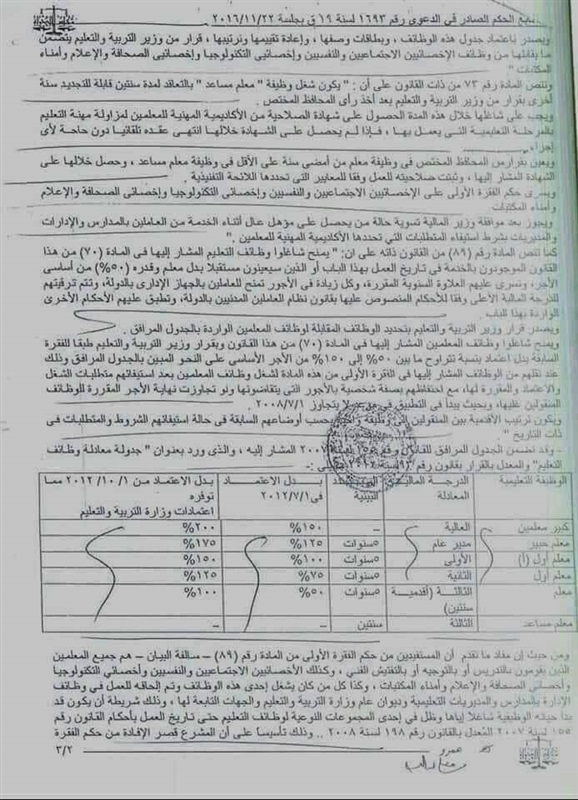 تابع الحكم الصادر في الدعوى رقم ١٦٩٣ لسنة ١٩ ق بجلسة ٢٠١٦/١١/٢٢
ويصدر باعتماد جدول هذه الوظائف ، وبطاقات وصفها ، وإعادة تقييمها وترتيبها ، قرار من وزير التربية والتعليم يتضمن
ما يقابلها من وظائف الإخصائيين الاجتماعيين والنفسيين وإخصائى التكنولوجيا وإخصائى الصحافة والإعلام وأمناء
المكتبات "
وتنص المادة رقم ٧٣ من ذات القانون على أن : " يكون شغل وظيفة " معلم مساعد " بالتعاقد لمدة سنتين قابلة للتجديد سنة
أخرى بقرار من وزير التربية والتعليم بعد أخذ رأى المحافظ المختص .
ويجب على شاغلها خلال هذه المدة الحصول على شهادة الصلاحية من الأكاديمية المهنية للمعلمين لمزاولة مهنة التعليم
بالمرحلة التعليمية التى يعمل بها ، فإذا لم يحصل على الشهادة خلالها انتهى عقده تلقائيا دون حاجة لأى
إجراء.
ويعين بقرار من المحافظ المختص فى وظيفة معلم من أمضى سنة على الأقل فى وظيفة معلم مساعد ، وحصل خلالها على
الشهادة المشار إليها ، وثبتت صلاحيته للعمل وفقا للمعايير التى تحددها اللائحة التنفيذية .
ويسرى حكم الفقرة الأولى على الإخصائيين الاجتماعيين والنفسيين وإخصائى التكنولوجيا وإخصائى الصحافة والإعلام
وأمناء المكتبات
ويجوز بعد موافقة وزير المالية تسوية حالة من يحصل على مؤهل عال أثناء الخدمة من العاملين بالمدارس والإدارات
والمديريات بشرط استيفاء المتطلبات التى تحددها الأكاديمية المهنية للمعلمين . "
كما تنص المادة رقم (٨٩) من القانون ذاته على ان: "يمنح شاغلوا وظائف التعليم المشار إليها فى المادة (٧٠) من هذا
القانون الموجودون بالخدمة فى تاريخ العمل بهذا الباب أو الذين سيعينون مستقبلا بدل معلم وقدره (٥٠%) من أساسى
الأجر، وتسرى عليهم العلاوة السنوية المقررة، وكل زيادة فى الأجور تمنح للعاملين بالجهاز الإدارى بالدولة، وتتم ترقيتهم
للدرجة المالية الأعلى وفقا للأحكام المنصوص عليها بقانون نظام العاملين المدنيين بالدولة، وتطبق عليهم الأحكام الأخرى
الواردة بهذا الباب .
ويصدر قرار وزير التربية والتعليم بتحديد الوظائف المقابلة لوظائف المعلمين الواردة بالجدول المرافق .
ويمنح شاغلوا وظائف المعلمين المشار إليها فى المادة (٧٠) من هذا القانون وبقرار وزير التربية والتعليم طبقا للفقرة
السابقة بدل اعتماد بنسبة تتراوح ما بين ٥٠% إلى ١٥٠% من الأجر الأساسى على النحو المبين بالجدول المرافق وذلك
عند نقلهم من الوظائف المشار إليها فى الفقرة الأولى من هذه المادة لشغل وظائف المعلمين بعد استيفائهم متطلبات الشغل
والاعتماد والمقررة لها، مع احتفاظهم بصفة شخصية بالأجور التى يتقاضونها ولو تجاوزت نهاية الأجر المقررة للوظائف
المنقولين عليها، وبحيث يبدأ فى التطبيق فى موعد لا يتجاوز ٢٠٠٨/٧/١
ويكون ترتيب الأقدمية بين المنقولين إلى وظيفة واحدة بحسب أوضاعهم السابقة فى حالة استيفائهم الشروط والمتطلبات فى
ذات التاريخ "
- وقد تضمن الجدول المرافق للقانون رقم ١٥٥ لسنة ٢٠٠٧ المشار إليه ، والذى ورد بعنوان " جدولة معادلة وظائف
التعليم" والمعدل بالقرار بقانون رقم
الوظيفة التعليمية | الدرجة المالية المعادلة | المدد البينية | بدل الاعتماد فى ٢٠١٢/٧/١ | بدل الاعتماد من ٢٠١٢/١٠/١ مما توفره اعتمادات وزارة التربية والتعليم
كبير معلمين | العالية | – | ١٥٠% | ٢٠٠%
معلم خبير | مدير عام | ٥سنوات | ١٢٥% | ١٧٥%
معلم أول (أ) | الأولى | ٥سنوات | ١٠٠% | ١٥٠%
معلم أول | الثانية | ٥سنوات | ٧٥% | ١٢٥%
معلم | الثالثة (أقدمية سنتين) | ٥سنوات | ٥٠% | ١٠٠%
معلم مساعد | الثالثة | سنتين | – | –
ومن حيث إن مفاد ما تقدم أن المستفيدين من حكم الفقرة الأولى من المادة رقم (٨٩) – سالفة البيان – هم جميع المعلمين
الذين يقومون بالتدريس أو بالتوجيه أو بالتفتيش الفنى ، وكذلك الأخصائيين الاجتماعيين والنفسيين وأخصائي التكنولوجيا
وأخصائى الصحافة والإعلام وأمناء المكتبات ، وكذا كل من كان يشغل إحدى هذه الوظائف وتم إلحاقه للعمل فى وظائف
الإدارة بالمدارس والمديريات التعليمية وديوان عام وزارة التربية والتعليم والجهات التابعة لها ، وذلك شريطة أن يكون قد
بدأ حياته الوظيفية شاغلاً إياها وظل فى إحدى المجموعات النوعية لوظائف التعليم حتى تاريخ العمل بأحكام القانون رقم
١٥٥ لسنة ٢٠٠٧ المُعدل بالقانون رقم ١٩٨ لسنة ٢٠٠٨ .. وذلك تأسيساً على أن المشرع قصر الإفادة من حكم الفقرة
عمرو
٣/٢